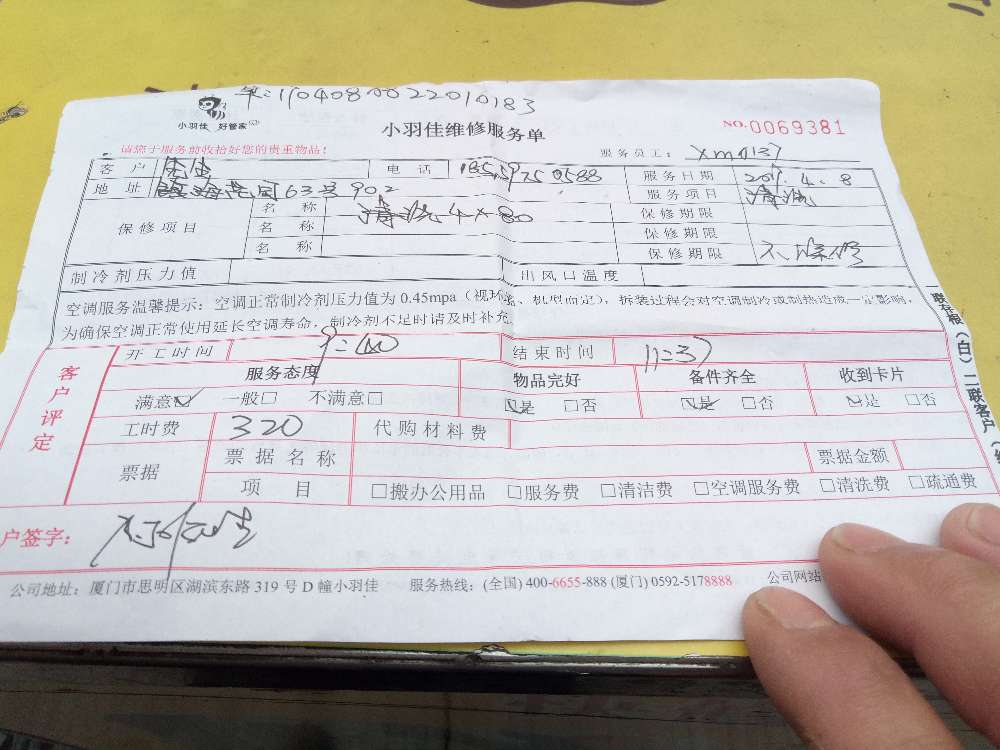 单:1904080022010183
小羽佳 好管家
小羽佳维修服务单
NO.0069381
请您于服务前收拾好您的贵重物品!
服务员工: xm0137
客户 电话 服务日期 2019.4.8
地址 63号902 服务项目 清洗
保修项目 名称 清洗4×80 保修期限
名称 保修期限
名称 保修期限 不保修
制冷剂压力值 出风口温度
空调服务温馨提示:空调正常制冷剂压力值为0.45mpa(视环境、机型而定),拆装过程会对空调制冷或制热造成一定影响,
为确保空调正常使用延长空调寿命,制冷剂不足时请及时补充
客户评定
开工时间 9:40 结束时间 11:37
服务态度 物品完好 备件齐全 收到卡片
满意☑ 一般□ 不满意□ ☑是 □否 ☑是 □否 ☑是 □否
工时费 320 代购材料费
票据 票据名称 票据金额
项目 □搬办公用品 □服务费 □清洁费 □空调服务费 □清洗费 □疏通费
户签字:
公司地址:厦门市思明区湖滨东路319号D幢小羽佳 服务热线:(全国)400-6655-888 (厦门)0592-5178888 公司网站
一联存根(白)二联客户